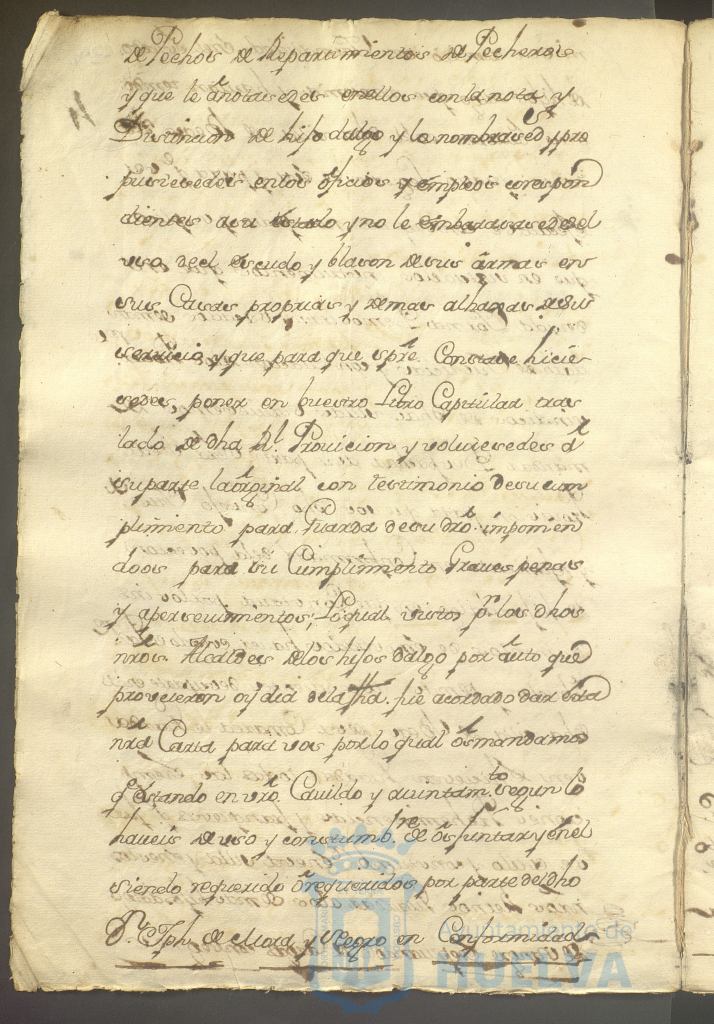 de Pechos de Repartimientos de Pecheros
y que le anotasedes en ellos con la nota y
Distincion de hijo dalgo y lo nombrasedes y pro
pusiesedes en los oficios y empleos correspon
dientes a su estado y no le embarasasedes el
uso de el escudo y blason de sus armas en
sus Casas proprias y demas alhaxas de su
servicio y que para que spre. Constase hicie
sedes, poner en buestro Libro Capitular tras
lado de dha Rl. Provicion y volviesedes a
su parte la original con testimonio de su cum
plimiento para Guarda de su dro. imponien
doos para su Cumplimiento Graves penas
y apersevimientos; Lo qual visto pr. los dhos
nros Alcaldes de los hijos dalgo por auto que
proveieron oy dia de la fha. fue acordado dar esta
nra Carta para vos por lo qual os mandamos
q. estando en vro. Cavildo y aiuntamto. segun lo
haveis de uso y costumbre. de os juntar y en el
siendo requerido o requeridos por parte del dho
Dn. Jph. de Mora y Negro en Conformidad
Ayuntamiento de
HUELVA